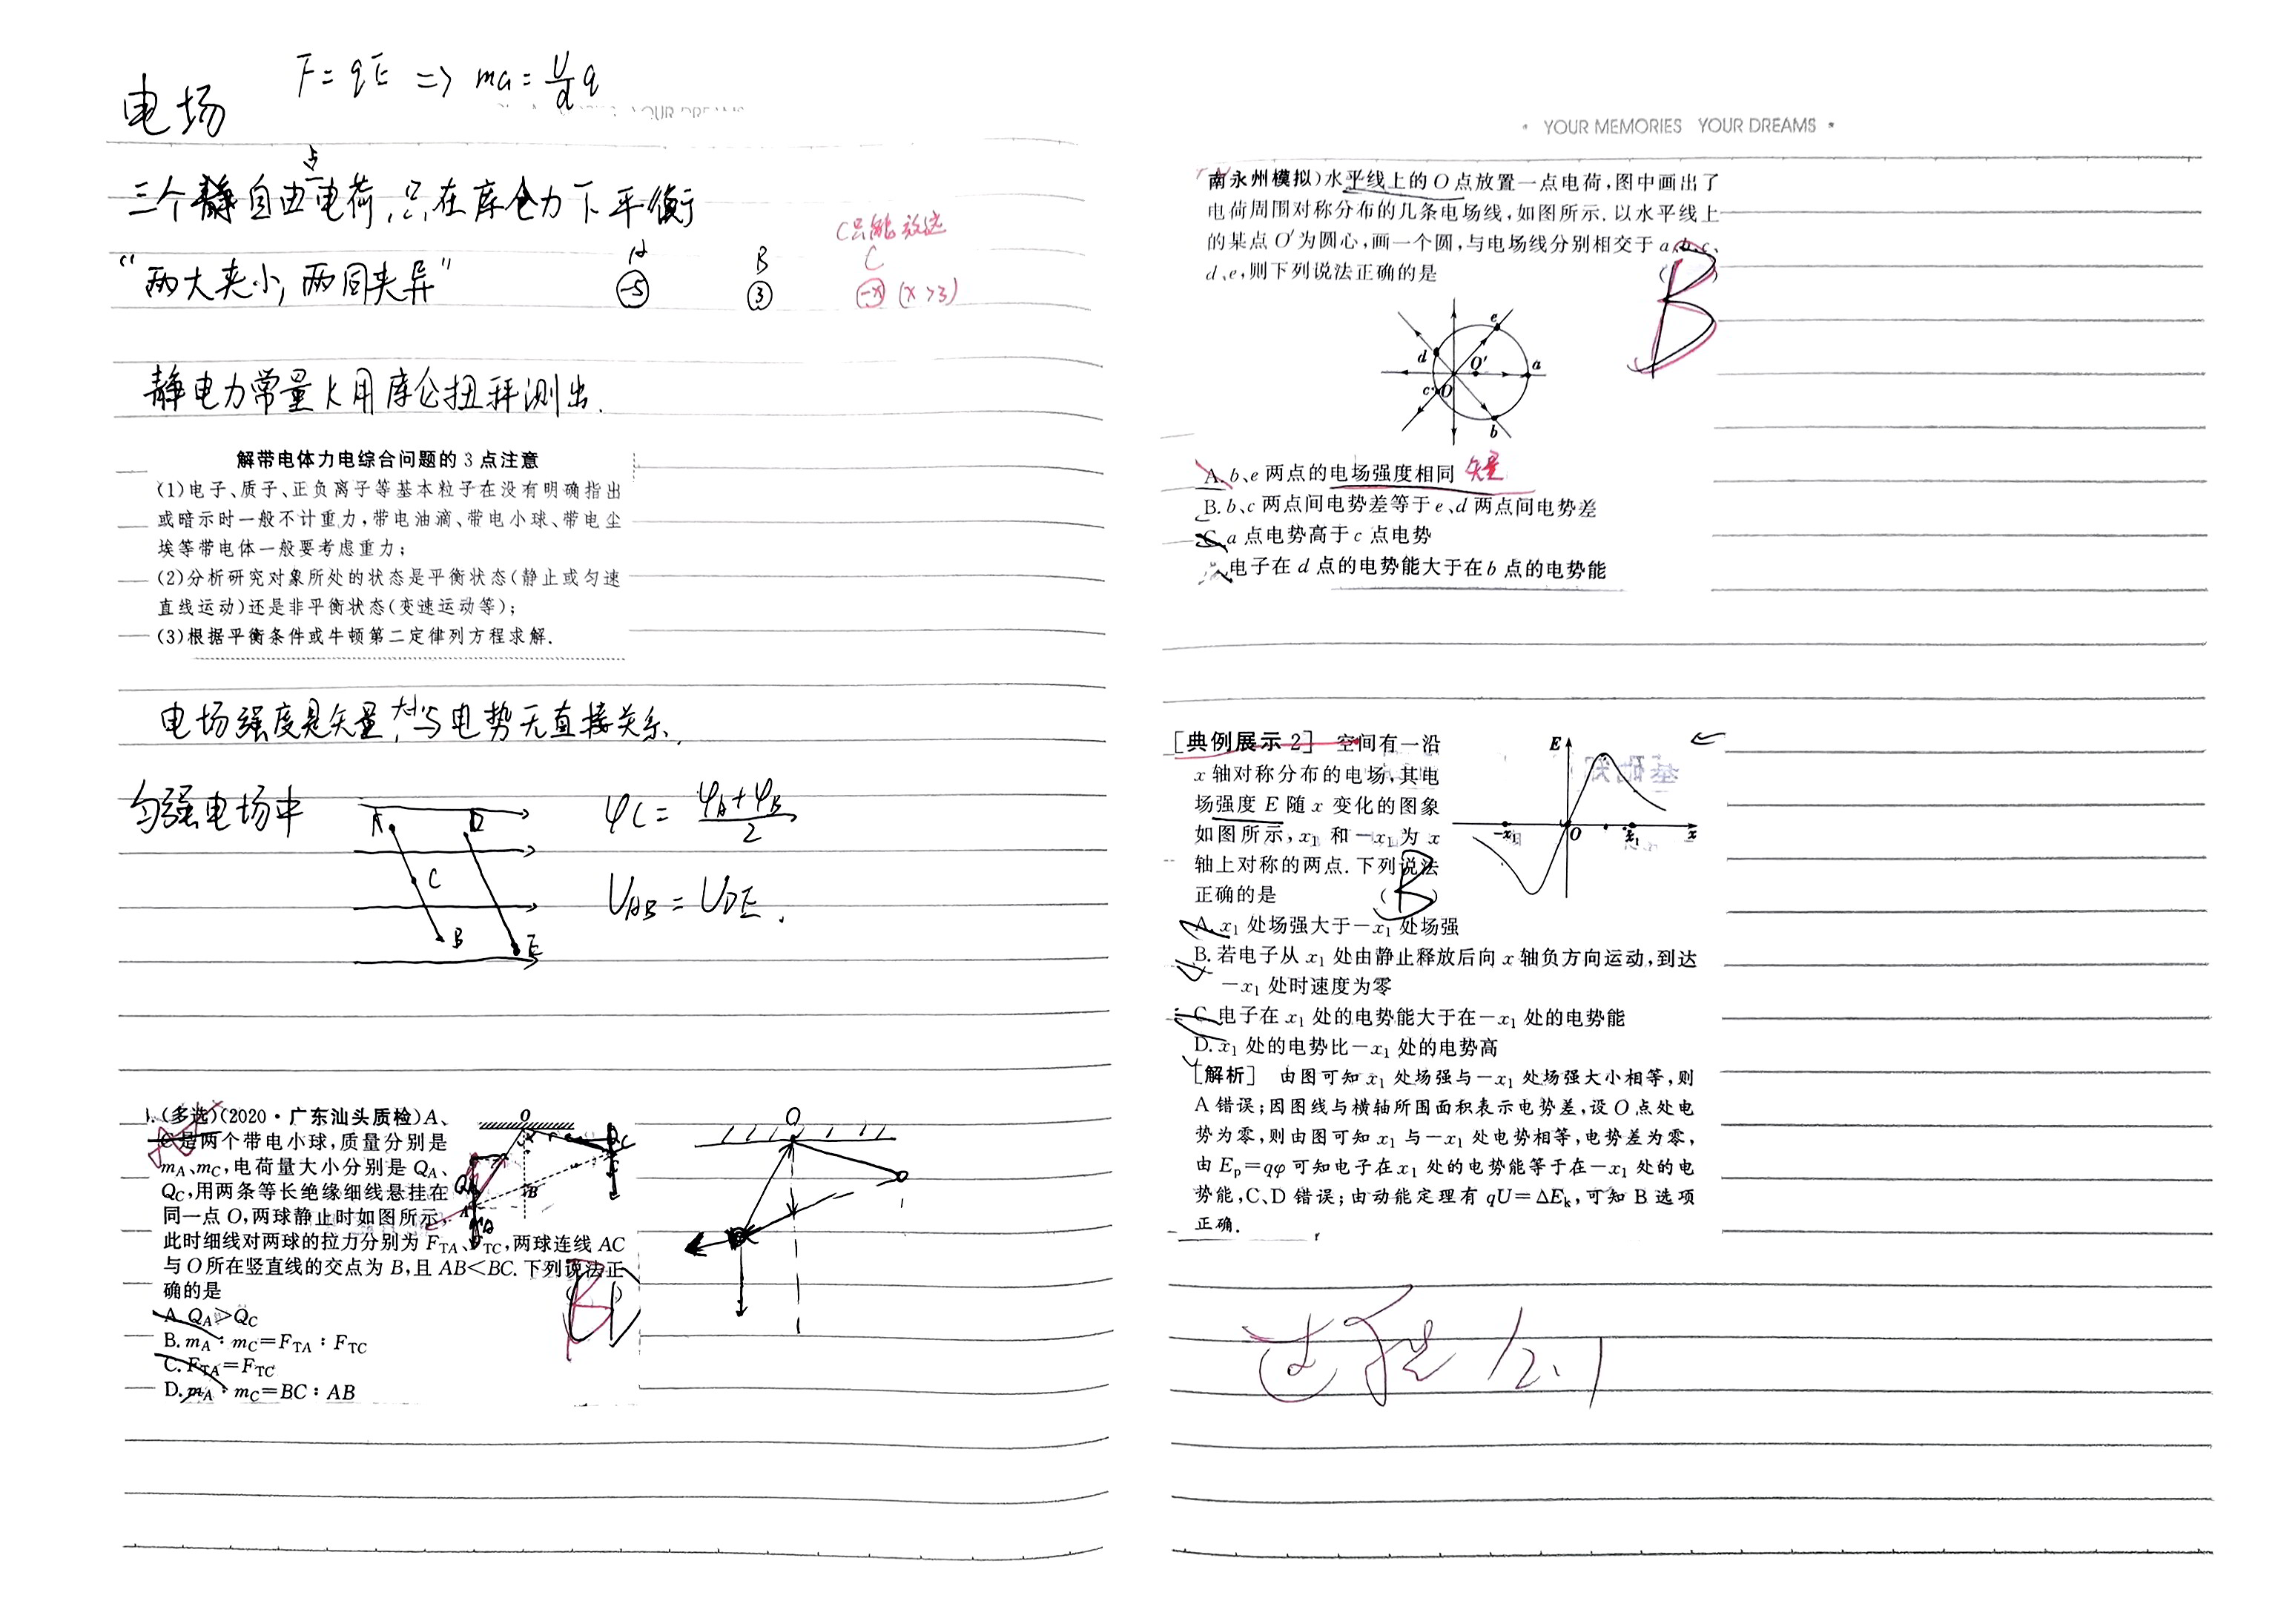 电场
F=qE => ma=U/d q
YOUR DREAMS
三个静自由点电荷,只在库仑力下平衡
"两大夹小,两同夹异"
A B C
C只能放这
-5 3 -x (x>3)
静电力常量K用库仑扭秤测出.
解带电体力电综合问题的3点注意
(1)电子、质子、正负离子等基本粒子在没有明确指出
或暗示时一般不计重力,带电油滴、带电小球、带电尘
埃等带电体一般要考虑重力;
(2)分析研究对象所处的状态是平衡状态(静止或匀速
直线运动)还是非平衡状态(变速运动等);
(3)根据平衡条件或牛顿第二定律列方程求解.
电场强度是矢量,与电势无直接关系.
匀强电场中
A D
C
B E
φC=(φA+φB)/2
UAB=UDE.
1.(多选)(2020·广东汕头质检)A、
C是两个带电小球,质量分别是
mA、mC,电荷量大小分别是QA、
QC,用两条等长绝缘细线悬挂在
同一点O,两球静止时如图所示,
此时细线对两球的拉力分别为FTA、FTC,两球连线AC
与O所在竖直线的交点为B,且AB<BC.下列说法正
确的是
A.QA>QC
B.mA:mC=FTA:FTC
C.FTA=FTC
D.mA:mC=BC:AB
O
C
B
A
O
· YOUR MEMORIES YOUR DREAMS ·
南永州模拟)水平线上的O点放置一点电荷,图中画出了
电荷周围对称分布的几条电场线,如图所示.以水平线上
的某点O′为圆心,画一个圆,与电场线分别相交于a、b、c、
d、e,则下列说法正确的是
( B )
e
d O′ a
c O
b
A.b、e两点的电场强度相同 矢量
B.b、c两点间电势差等于e、d两点间电势差
C.a点电势高于c点电势
电子在d点的电势能大于在b点的电势能
[典例展示2] 空间有一沿
x轴对称分布的电场,其电
场强度E随x变化的图象
如图所示,x1和-x1为x
轴上对称的两点.下列说法
正确的是 ( B )
E
-x1 O x1 x
A.x1处场强大于-x1处场强
B.若电子从x1处由静止释放后向x轴负方向运动,到达
-x1处时速度为零
C.电子在x1处的电势能大于在-x1处的电势能
D.x1处的电势比-x1处的电势高
[解析] 由图可知x1处场强与-x1处场强大小相等,则
A错误;因图线与横轴所围面积表示电势差,设O点处电
势为零,则由图可知x1与-x1处电势相等,电势差为零,
由Ep=qφ可知电子在x1处的电势能等于在-x1处的电
势能,C、D错误;由动能定理有qU=ΔEk,可知B选项
正确.